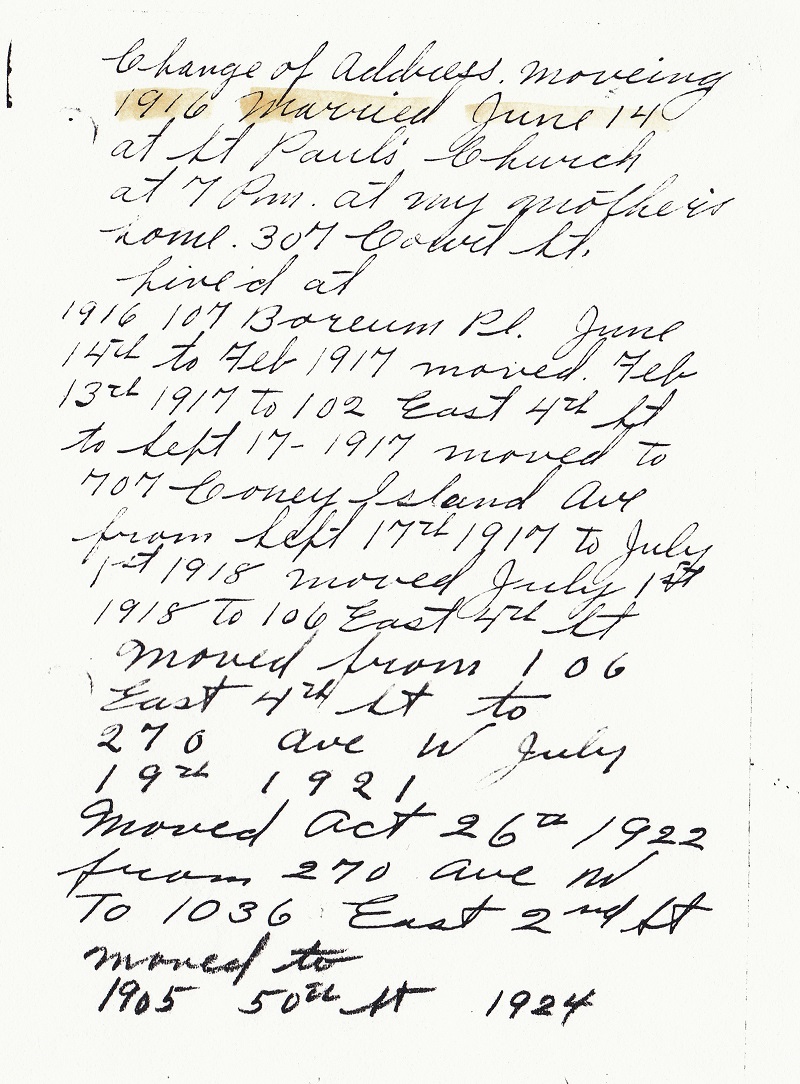 Change of Address. moveing
1916 Married June 14
at St Paul's Church
at 7 Pm. at my mother's
home. 307 Court St.
Live'd at
1916 107 Boreum Pl. June
14th to Feb 1917 moved. Feb
13th 1917 to 102 East 4th St
to Sept 17- 1917 moved to
707 Coney Island Ave
from Sept 17th 1917 to July
1st 1918 moved July 1st
1918 to 106 East 4th St
Moved from 106
East 4th St to
270 Ave W July
19th 1921
Moved Oct 26th 1922
from 270 Ave W
To 1036 East 2nd St
moved to
1905 50th St 1924